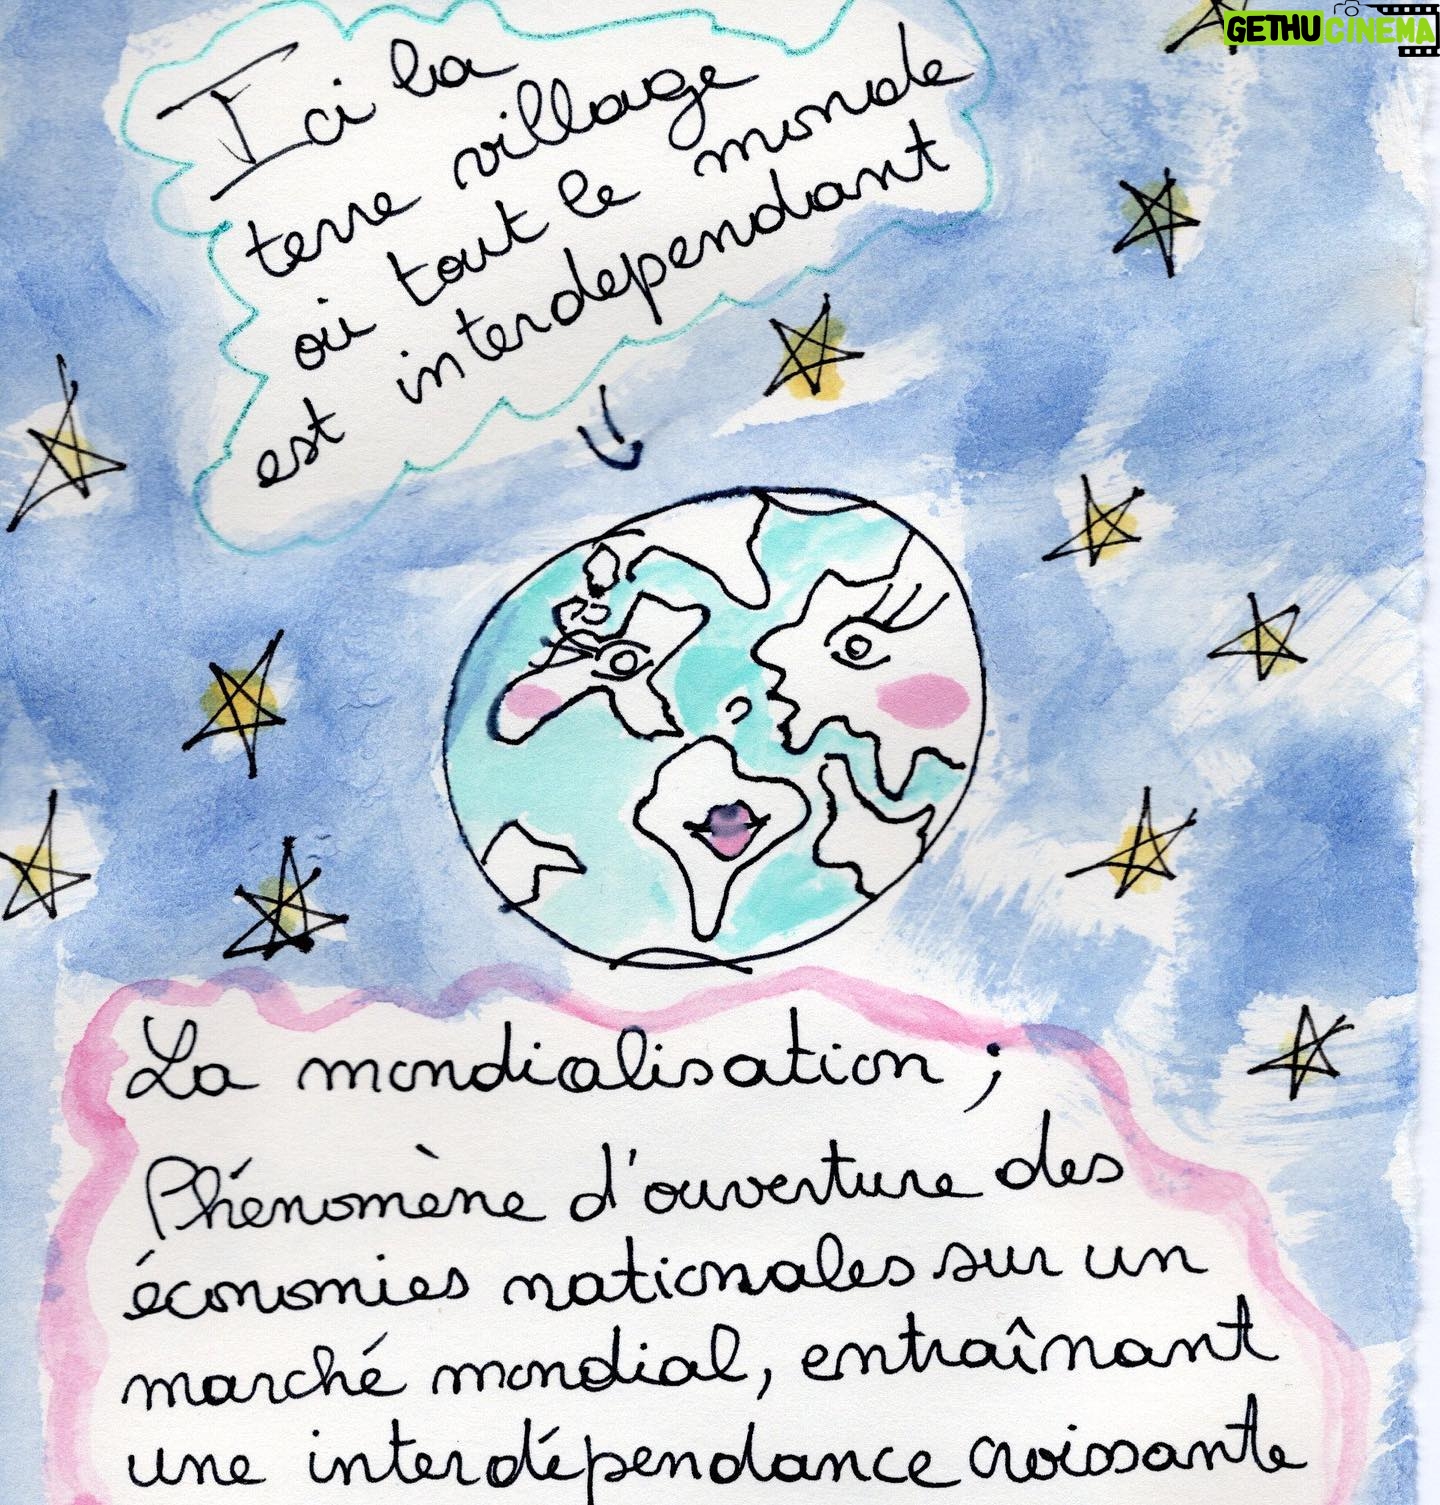 GETHUCINEMA
Ici la
terre village
où tout le monde
est interdependant
La mondialisation ;
Phénomène d'ouverture des
économies nationales sur un
marché mondial, entraînant
une interdépendance croissante